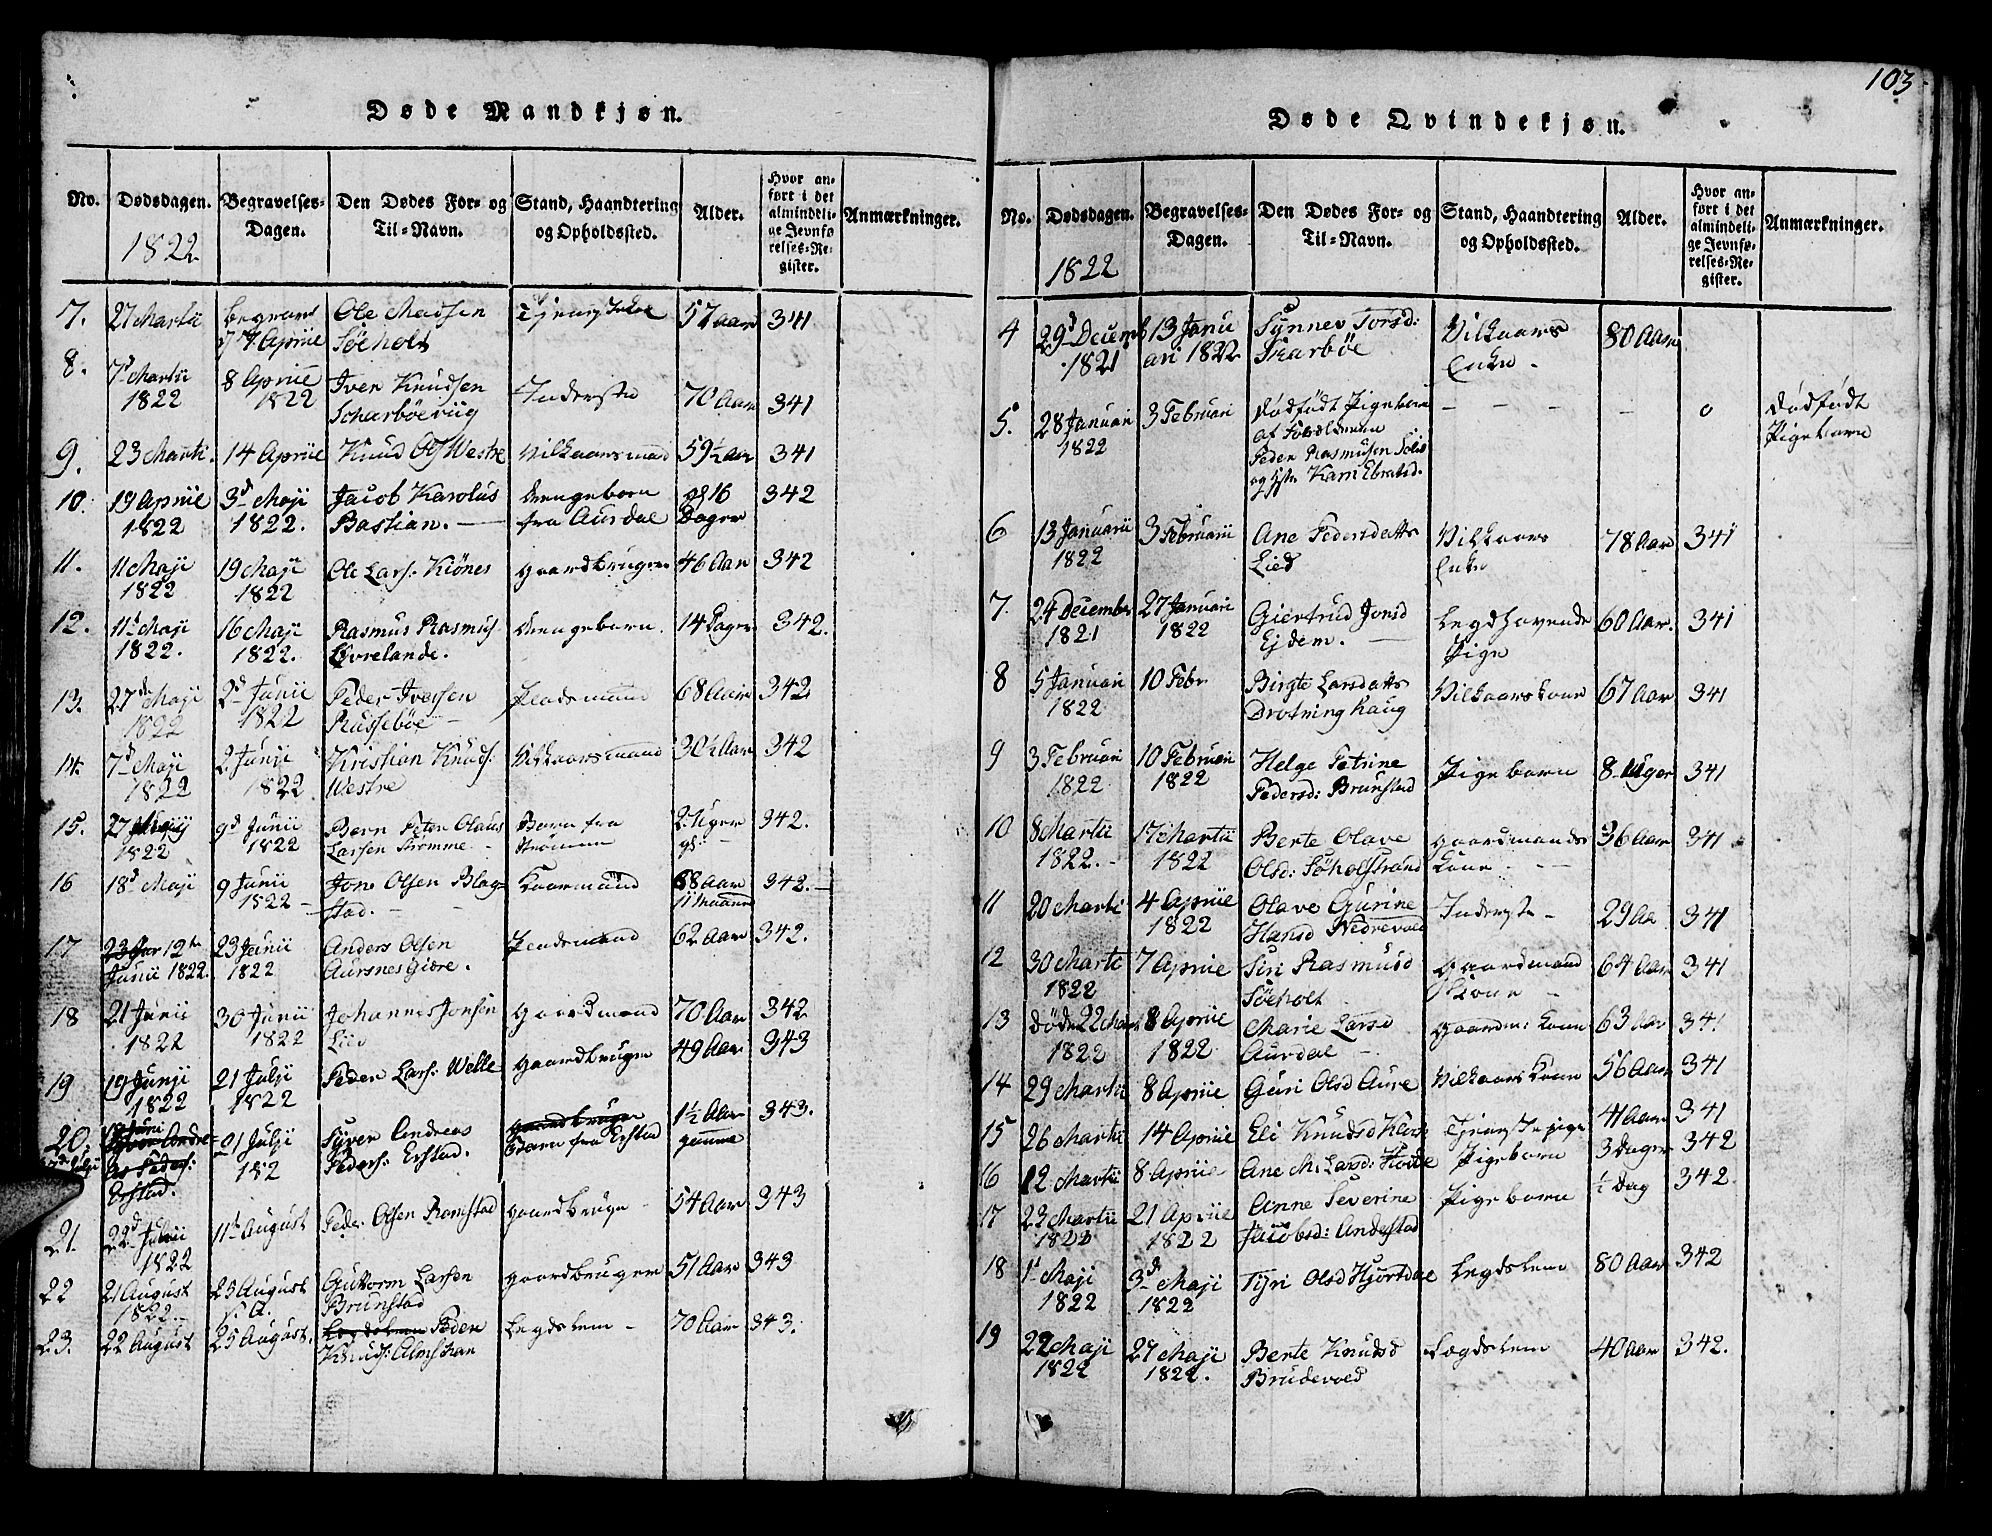 103
Døde Mandkjøn.
No. Dødsdagen. Begravelses-Dagen. Den Dødes For- og Til-Navn. Stand, Haandtering og Opholdssted. Alder. Hvor anført i det almindelige Jevnførelses-Register. Anmærkninger.
1822
7. 27 Martii begravet 7 Aprile Ole Madsen Söeholt 57 Aar 341
8. 7d Martii 1822 8 Aprile 1822 Iver Knudsen Inderste 70 Aar 341
9. 23 Marti. 14 Aprile Knud Ols Westre Vilkaarsmand 59½ Aar 341
10. 19 Aprile 1822 3d Maji 1822. Jacob Karolus Bastian. Drengebarn fra Aurdal gl 16 Dager 342
11. 11 Maji 1822 19 Maji 1822 Ole Lars: Kiönes gaardbruger 46 Aar 342
12. 11d Maji 1822. 16 Maji 1822. Rasmus Rasmus. Øvrelande. Drengebarn. 14 Dager 342.
13. 27de Maji 1822 2d Junii 1822 Peder Iversen Pladsmand 68 Aar 342
14. 7d Maji 1822 2 Junii 1822. Kristian Knuds: Westre Vilkaarsmand 30½ Aar 342
15. 27 Maji 1822 9d Junii 1822 Barn Peter Olaus Larsen Strømme Barn fra Strømme 2 Uger gl. 342.
16 18d Maji 9 Junii 1822 Jon Olsen Blagstad. Kaarmand 68 Aar 342.
17 19te Junii 1822. 23 Junii 1822 Anders Olsen AursnesGiære. Pladsmand 62 Aar 342.
18 21 Junii 1822 30 Junii 1822 Johannes Jonsen Lied gaardmand 70 Aar 342
19 19 Junji 1822 21 Julji 1822 Peder Lars: Welle gaardbruger 49 Aar 343
20. 21 Julji 182 Syver Andreas Peders: Erstad. Barn fra Erstad 1½ Aar gamme 343.
21. 22d Julii 1822 11te August Peder Olsen Ramstad gaardbruge 54 Aar 343
22 21 August 1822. 25 August Guttorm Larsen Brunstad gaardbruger 51 Aar 343
23. 22 August 25 August. Peder Knuds: Legdslem 70 Aar 343.
Døde Qvindekjøn.
No. Dødsdagen. Begravelses-Dagen. Den Dødes For- og Til-Navn. Stand, Haandtering og Opholdssted. Alder. Hvor anført i det almindelige Jevnførelses-Register. Anmærkninger.
1822
4 29d Decemb 1821 13 Januari 1822 Synnev Torsd: Skarböe Vilkaars Enke. 80 Aar
5. 28 Januari 1822 3 Februari Dödfödt Pigebarn af Peder Rasmusen og Karn o Dödfödt Pigebarn
6 13 Januarii 1822 3 Februarii Ane Pedersdatts Lied Vilkaars Enke 78 Aar 341
7. 24 December 1821 27 Januari 1822 Giertrud Jonsd Ejdem. Legdhavende Pige 60 Aar. 341
8 5 Januari 1822 10 Febr Birgte Larsdatts Drotninghaug Vilkaarskone 67 Aar 341
9 3 Februari 1822 10 Februari 1822 Helge Petrine Pedersd: Brunstad Pigebarn 8 Uger 341
10 8 Martii 1822. 17 Martii 1822 Berte Olave Olsd: Söholtstrand gaardmands Kone 36 Aar 341
11 20 Marti 4 Aprile 1822 Olave Gurine Hansd Nedrevold Inderste 29 Aar 341
12 30 Marti 1822 7 Aprile Siri Rasmusd Söeholt gaardmand Kone 64 Aar 341
13 Döde 22 Marti 1822 8 Aprile 1822 Marie Larsd Aurdal gaardm: Kone 63 Aar 341
14 29 Martii 8 Aprile Guri Olsd Aure Vilkaars Kone 56 Aar 341
15 26 Martii 14 Aprile Eli Knudsd Tjenestepige 41 Aar 341
16 12 Martii 8 Aprile Ane M. Larsd: Pigebarn 3 Dager 342
17 23 Martii 1822 21 Aprile 1822 Anne Severine Jacobsd: Andestad Pigebarn ½ Dag 342.
18 1d Maji 1822 3de Maji 1822 Tyri Olsd Hjortdal Legdslem 80 Aar 342
19 22 Maji 1822 27 Maji 1822. Berte Knudsd Brudevold Lægdslem 40 Aar 342.